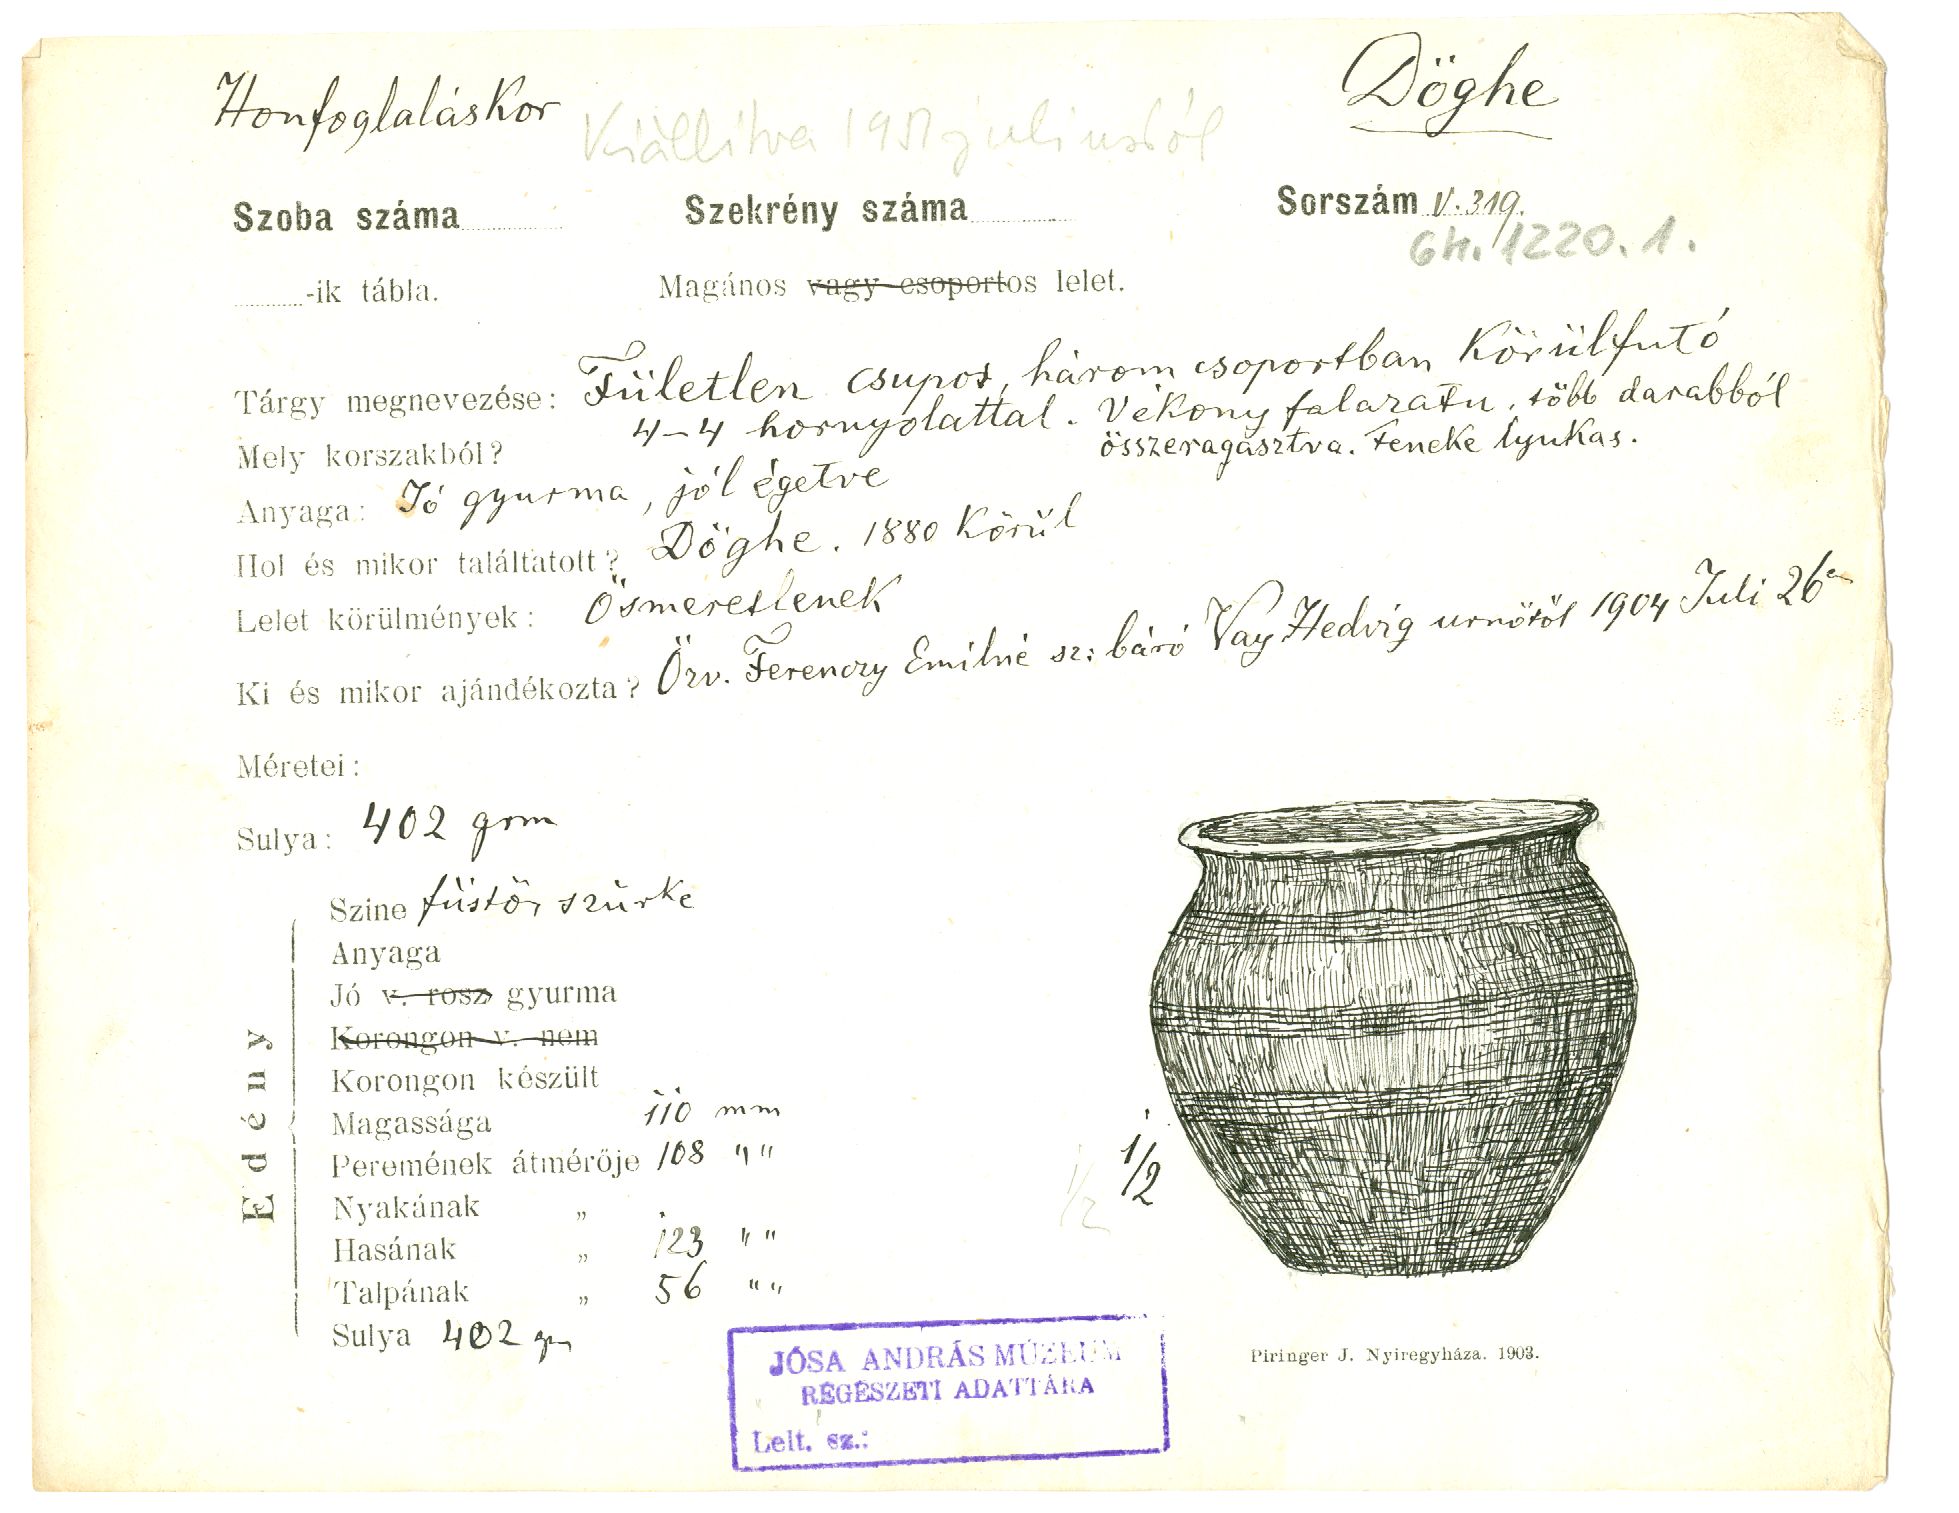 Honfoglaláskor
Döghe
Kiállítva 1951 juliustól
Szoba száma
Szekrény száma
Sorszám V. 319.
Gh. 1220. 1.
-ik tábla.
Magános vagy csoportos lelet.
Tárgy megnevezése: Fületlen csupor, három csoportban körülfutó
4–4 hornyolattal. Vékony falazatu, több darabból
Mely korszakból?
összeragasztva. Feneke lyukas.
Anyaga: Jó gyurma, jól égetve
Hol és mikor találtatott? Döghe. 1880 körül
Lelet körülmények: Ösmeretlenek
Ki és mikor ajándékozta? Özv. Ferenczy Emilné sz: báró Vay Hedvig urnőtől 1904 Juli 26án
Méretei:
Sulya: 402 grm
Edény
Szine füstös szürke
Anyaga
Jó v. rosz gyurma
Korongon v. nem
Korongon készült
Magassága 110 mm
Peremének átmérője 108 " "
Nyakának "
Hasának " 123 " "
Talpának " 56 " "
Sulya 402 gr
1/2
1/2
JÓSA ANDRÁS MÚZEUM
RÉGÉSZETI ADATTÁRA
Lelt. sz.:
Piringer J. Nyiregyháza. 1903.